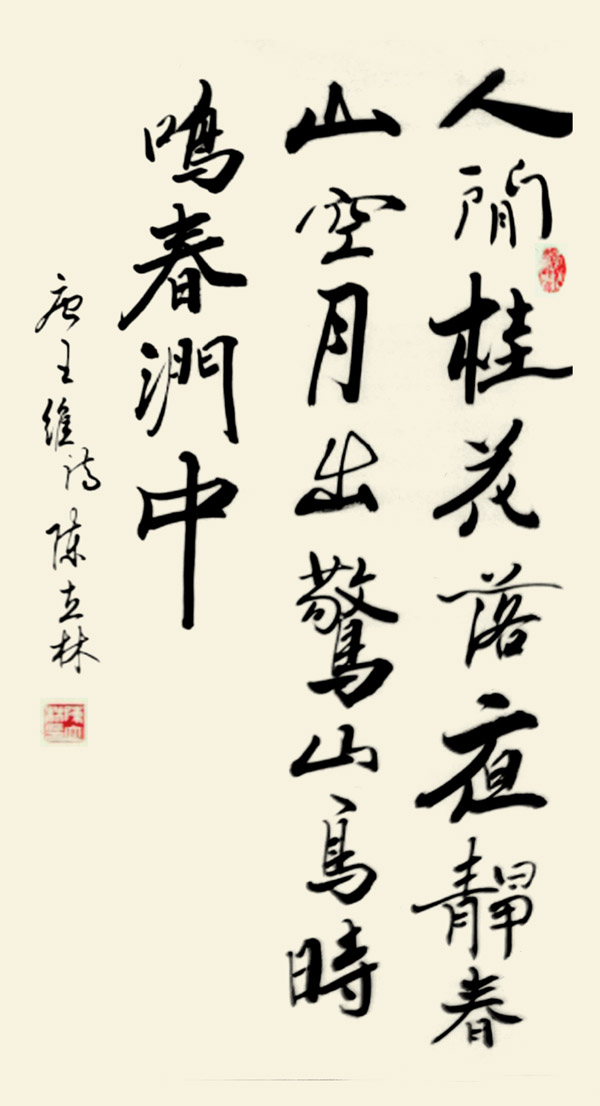 人閒桂花落夜靜春
山空月出驚山鳥時
鳴春澗中
唐王維詩 陳立林